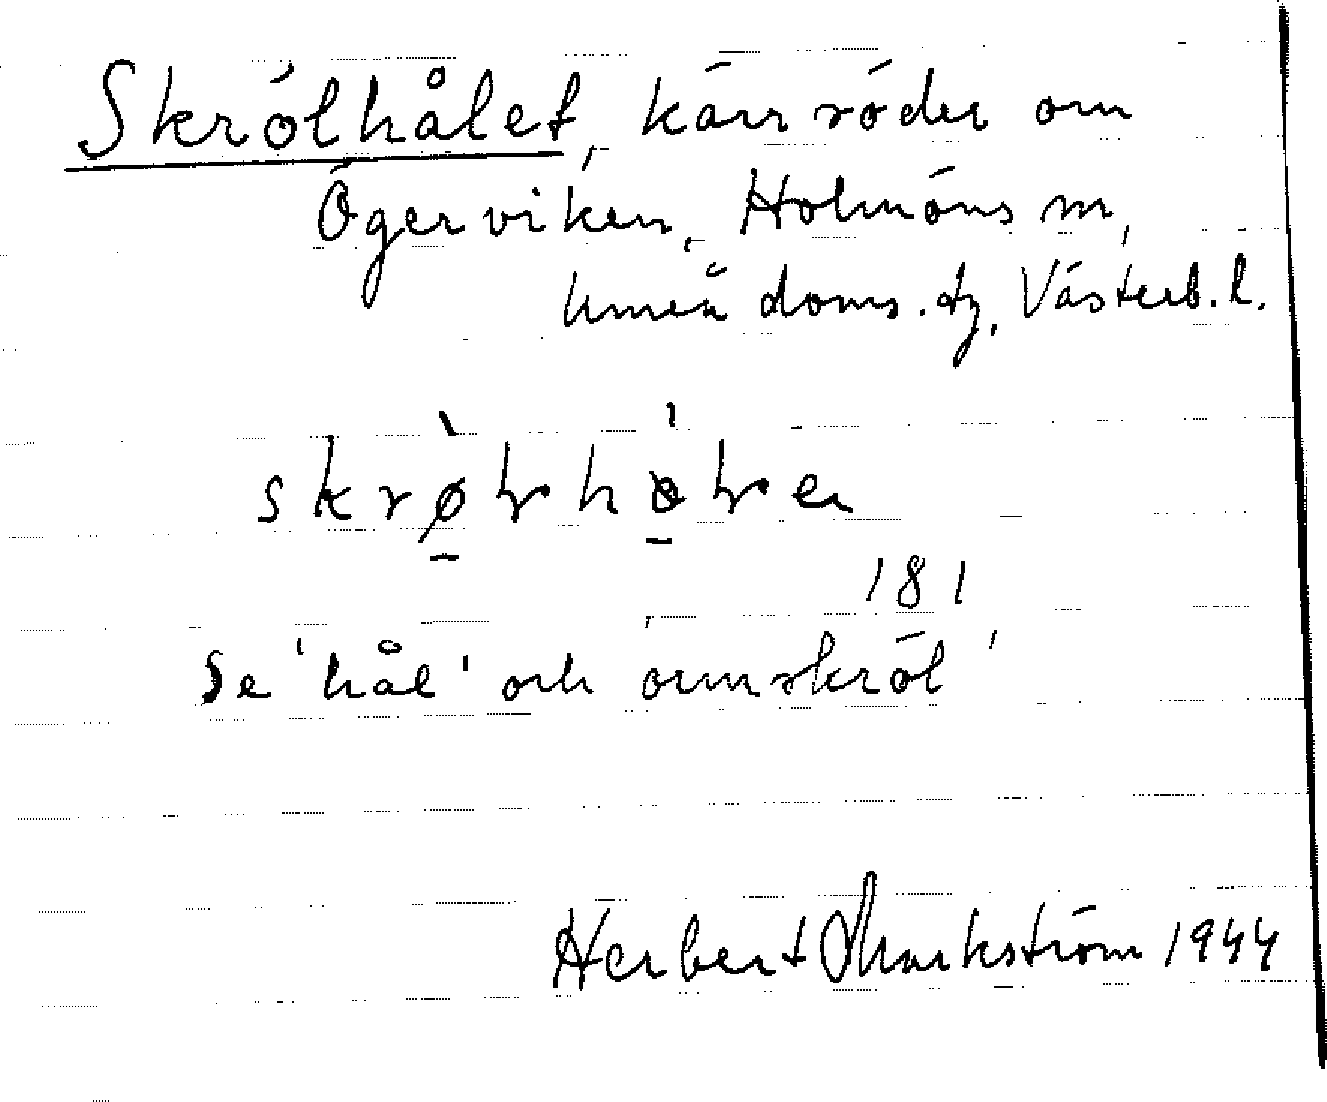 Skrölhålet, kärr söder om
Ögerviken, Holmöns sn,
Umeå doms. tg, Västerb. l.
skrø̀ɽhɵ̀ɽen
181
Se 'hål' och ormskröl'
Herbert Markström 1944